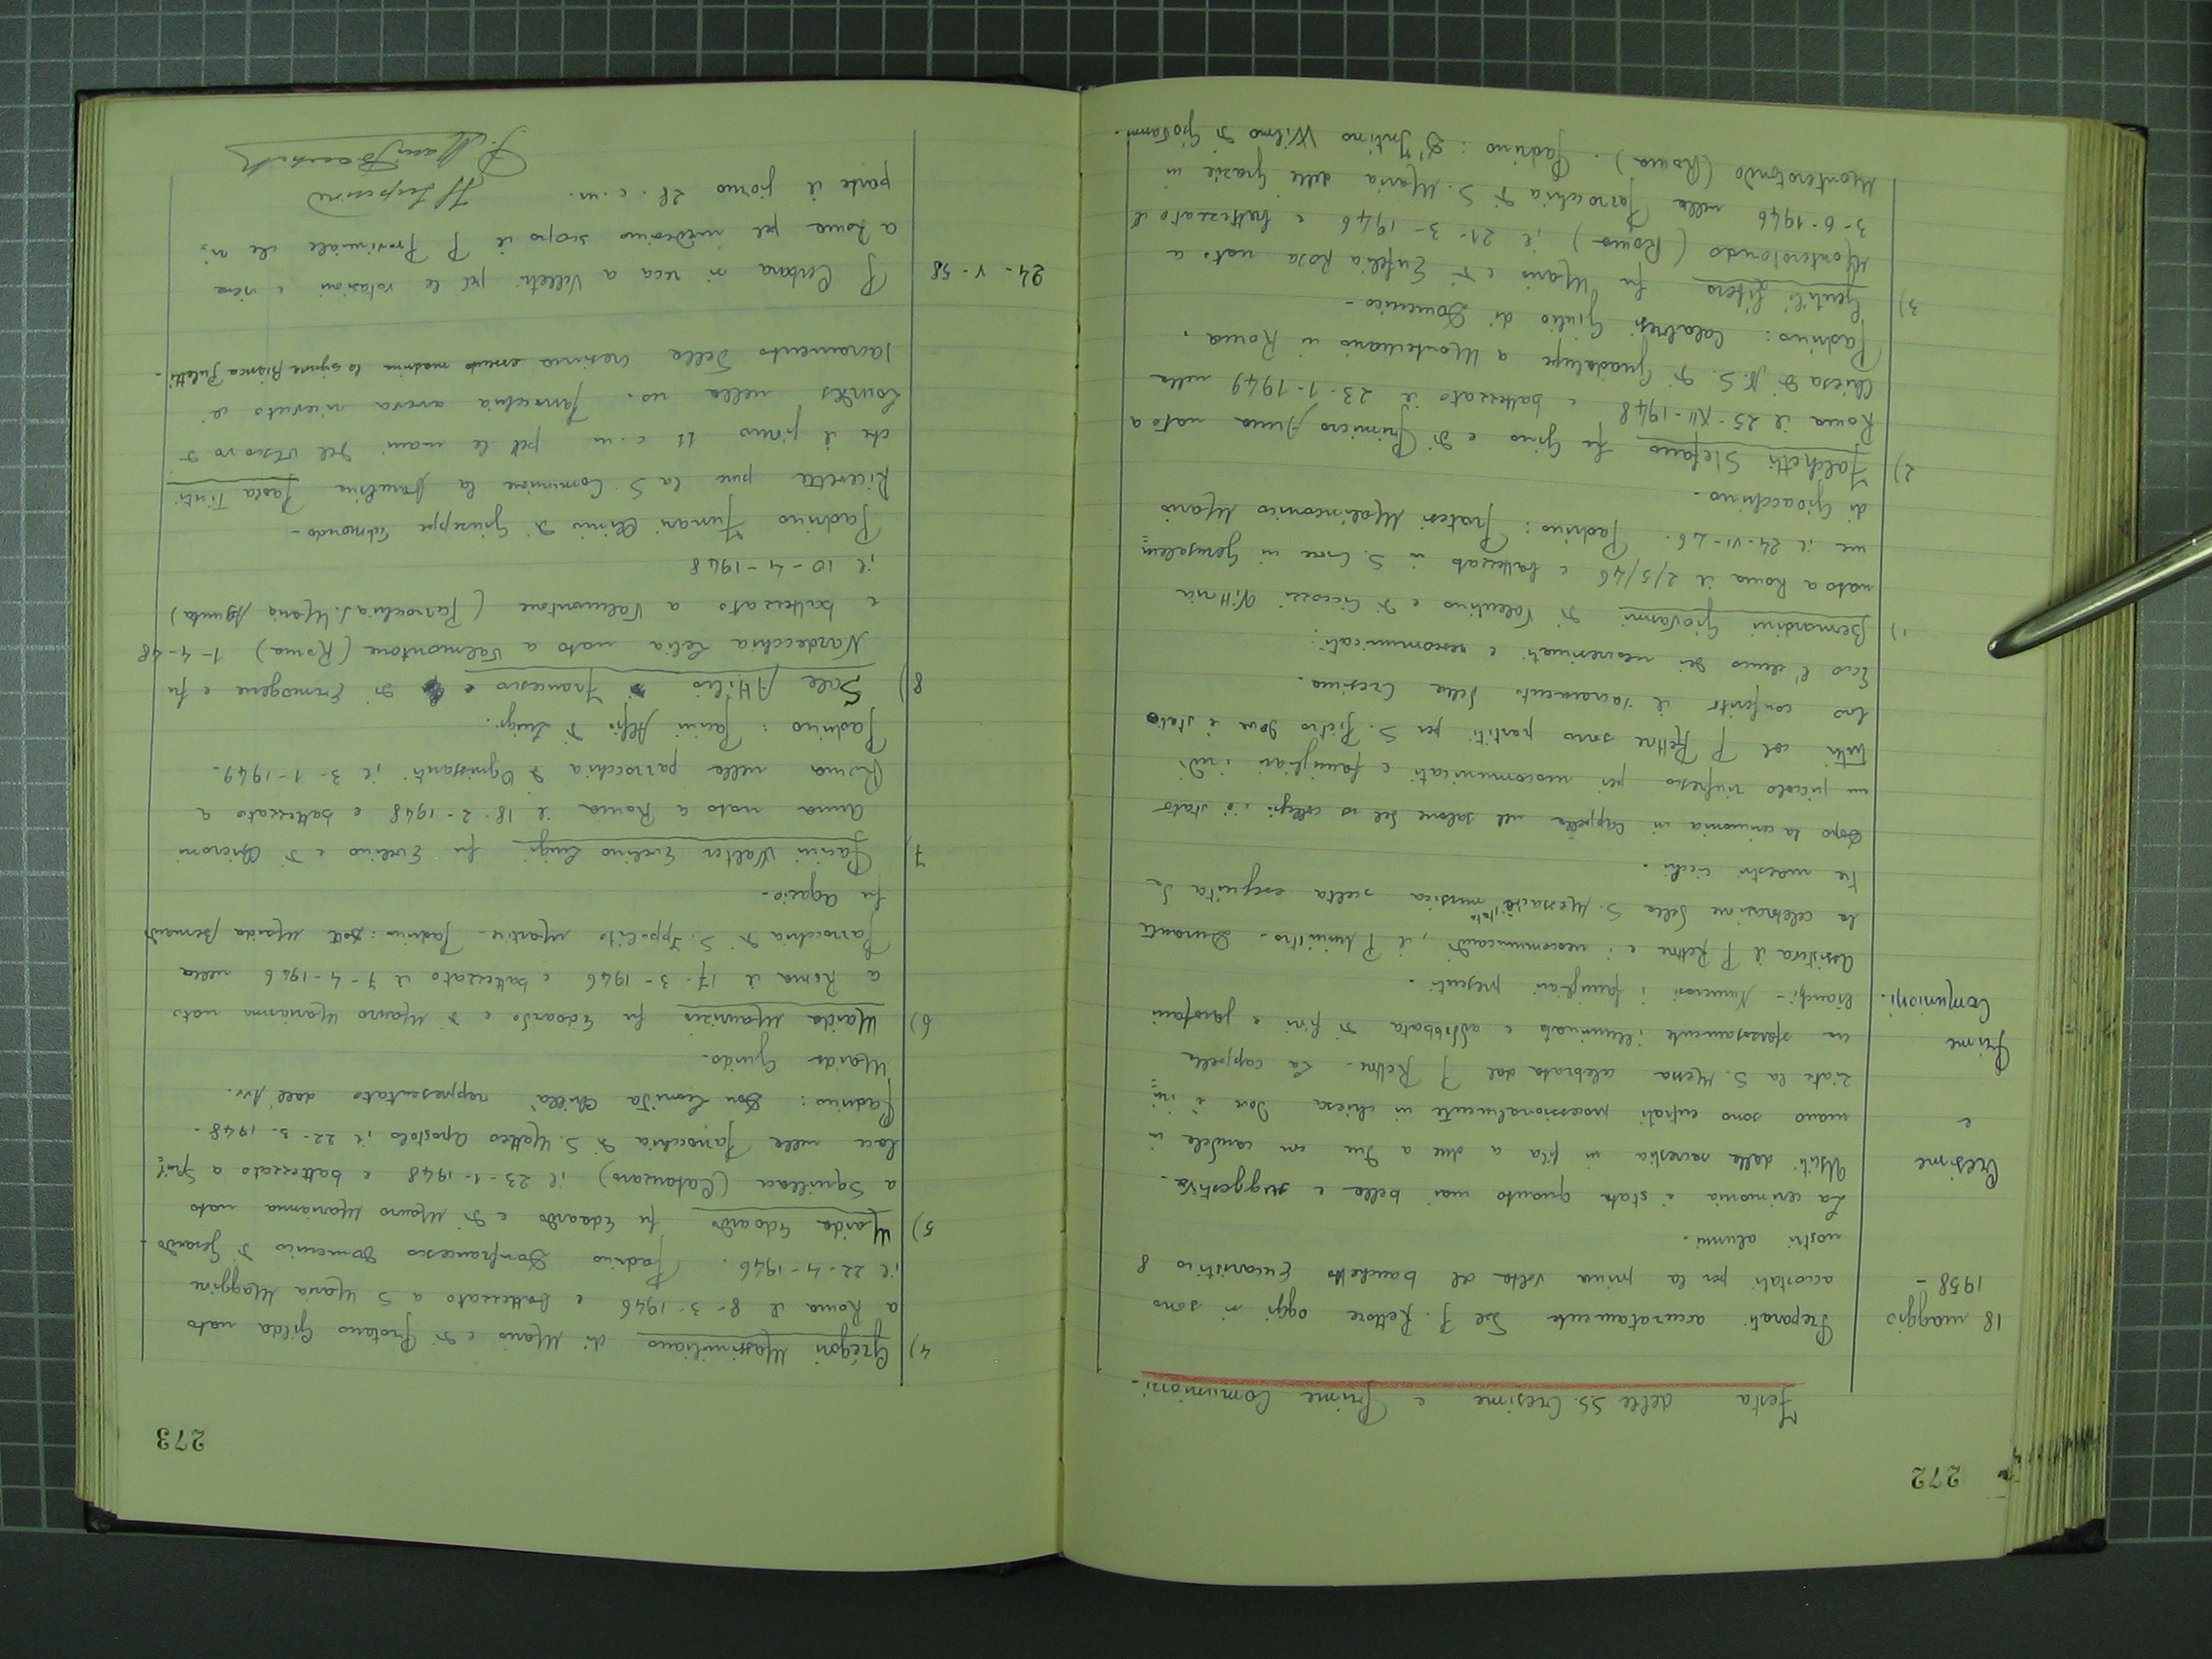 272
Festa delle SS. Cresime e Prime Comunioni.
18 maggio
1958 -
Preparati accuratamente dal P. Rettore oggi si sono
accostati per la prima volta al banchetto Eucaristico 8
nostri alunni.
Cresime
e
Prime
Comunioni.
La cerimonia è stata quanto mai bella e suggestiva.
Usciti dalla sacrestia in fila a due a due con candele in
mano sono entrati processionalmente in chiesa dove è ini=
ziata la S. Messa celebrata dal P. Rettore. La cappella
era sfarzosamente illuminata e addobbata di fiori e garofani
bianchi - Numerosi i famigliari presenti.
Assisteva il P. Rettore e i neocomunicandi, il P. Ministro. Durante
la celebrazione della S. Messa è stata musica scelta eseguita da
tre maestri ciechi.
Dopo la cerimonia in cappella nel salone del ns collegio c'è stato
un piccolo rinfresco pei neocomunicati e famigliari indi
tutti col P. Rettore sono partiti per S. Pietro dove è stato
loro conferito il sacramento della Cresima.
Ecco l'elenco dei neocresimati e neocomunicati:
1) Bernardini Giovanni di Valentino e di Ciccozzi Vittoria
nato a Roma il 2/5/46 e battezzato in S. Croce in Gerusalem=
me il 24-VI-46. Padrino: Pratesi Malinconico Mario
di Gioacchino -
2) Falchetti Stefano fu Gino e di Primicino Anna nato a
Roma il 25-XII-1948 e battezzato il 23-1-1949 nella
Chiesa di N. S. di Guadalupe a Montemario in Roma.
Padrino: Calabresi Giulio di Domenico -
3) Gentili Libero fu Mario e di Eufelia Rosa nato a
Monterotondo (Roma) il 21-3-1946 e battezzato il
3-6-1946 nella Parrocchia di S. Maria delle Grazie in
Monterotondo (Roma). Padrino: D'Intino Wilmo di Giovanni.
273
4) Gregori Massimiliano di Mario e di Protano Gilda nato
a Roma il 8-3-1946 e battezzato a S. Maria Maggiore
il 22-4-1946. Padrino Donfrancesco Domenico di Gerardo -
5) Maida Edoardo fu Edoardo e di Mauro Marianna nato
a Squillace (Catanzaro) il 23-1-1948 e battezzato a Squil=
lace nella Parrocchia di S. Matteo Apostolo il 22-3-1948 -
Padrino: Don Leonida Chillà rappresentato dall'Avv.
Maida Guido -
6) Maida Maurizio fu Edoardo e di Mauro Marianna nato
a Roma il 17-3-1946 e battezzato il 7-4-1946 nella
Parrocchia di S. Ippolito Martire. Padrino: Dott. Maida Bernardo
fu Agazio -
7) Pacini Walter Evelino Luigi fu Evelino e di Chieroni
Anna nato a Roma il 18-2-1948 e battezzato a
Roma nella parrocchia di Ognissanti il 3-1-1949 -
Padrino: Pacini Alfio di Luigi.
8) Sale Attilio Francesco di Ermogene e fu
Nardecchia Lelia nato a Valmontone (Roma) 1-4-48
e battezzato a Valmontone (Parrocchia S. Maria Assunta)
il 10-4-1948
Padrino Funari Clinio di Giuseppe Edmondo -
Ricevette pure la S. Comunione la fanciulla Paola Tinti
che il giorno 11 c.m. per le mani del Vescovo di
Lourdes nella ns. Parrocchia aveva ricevuto il
sacramento della Cresima essendo madrina la signora Bianca Juletti.
24-V-58
P. Corbara si reca a Velletri per le votazioni e viene
a Roma pel medesimo scopo il P. Provinciale che ri=
parte il giorno 28. c.m.